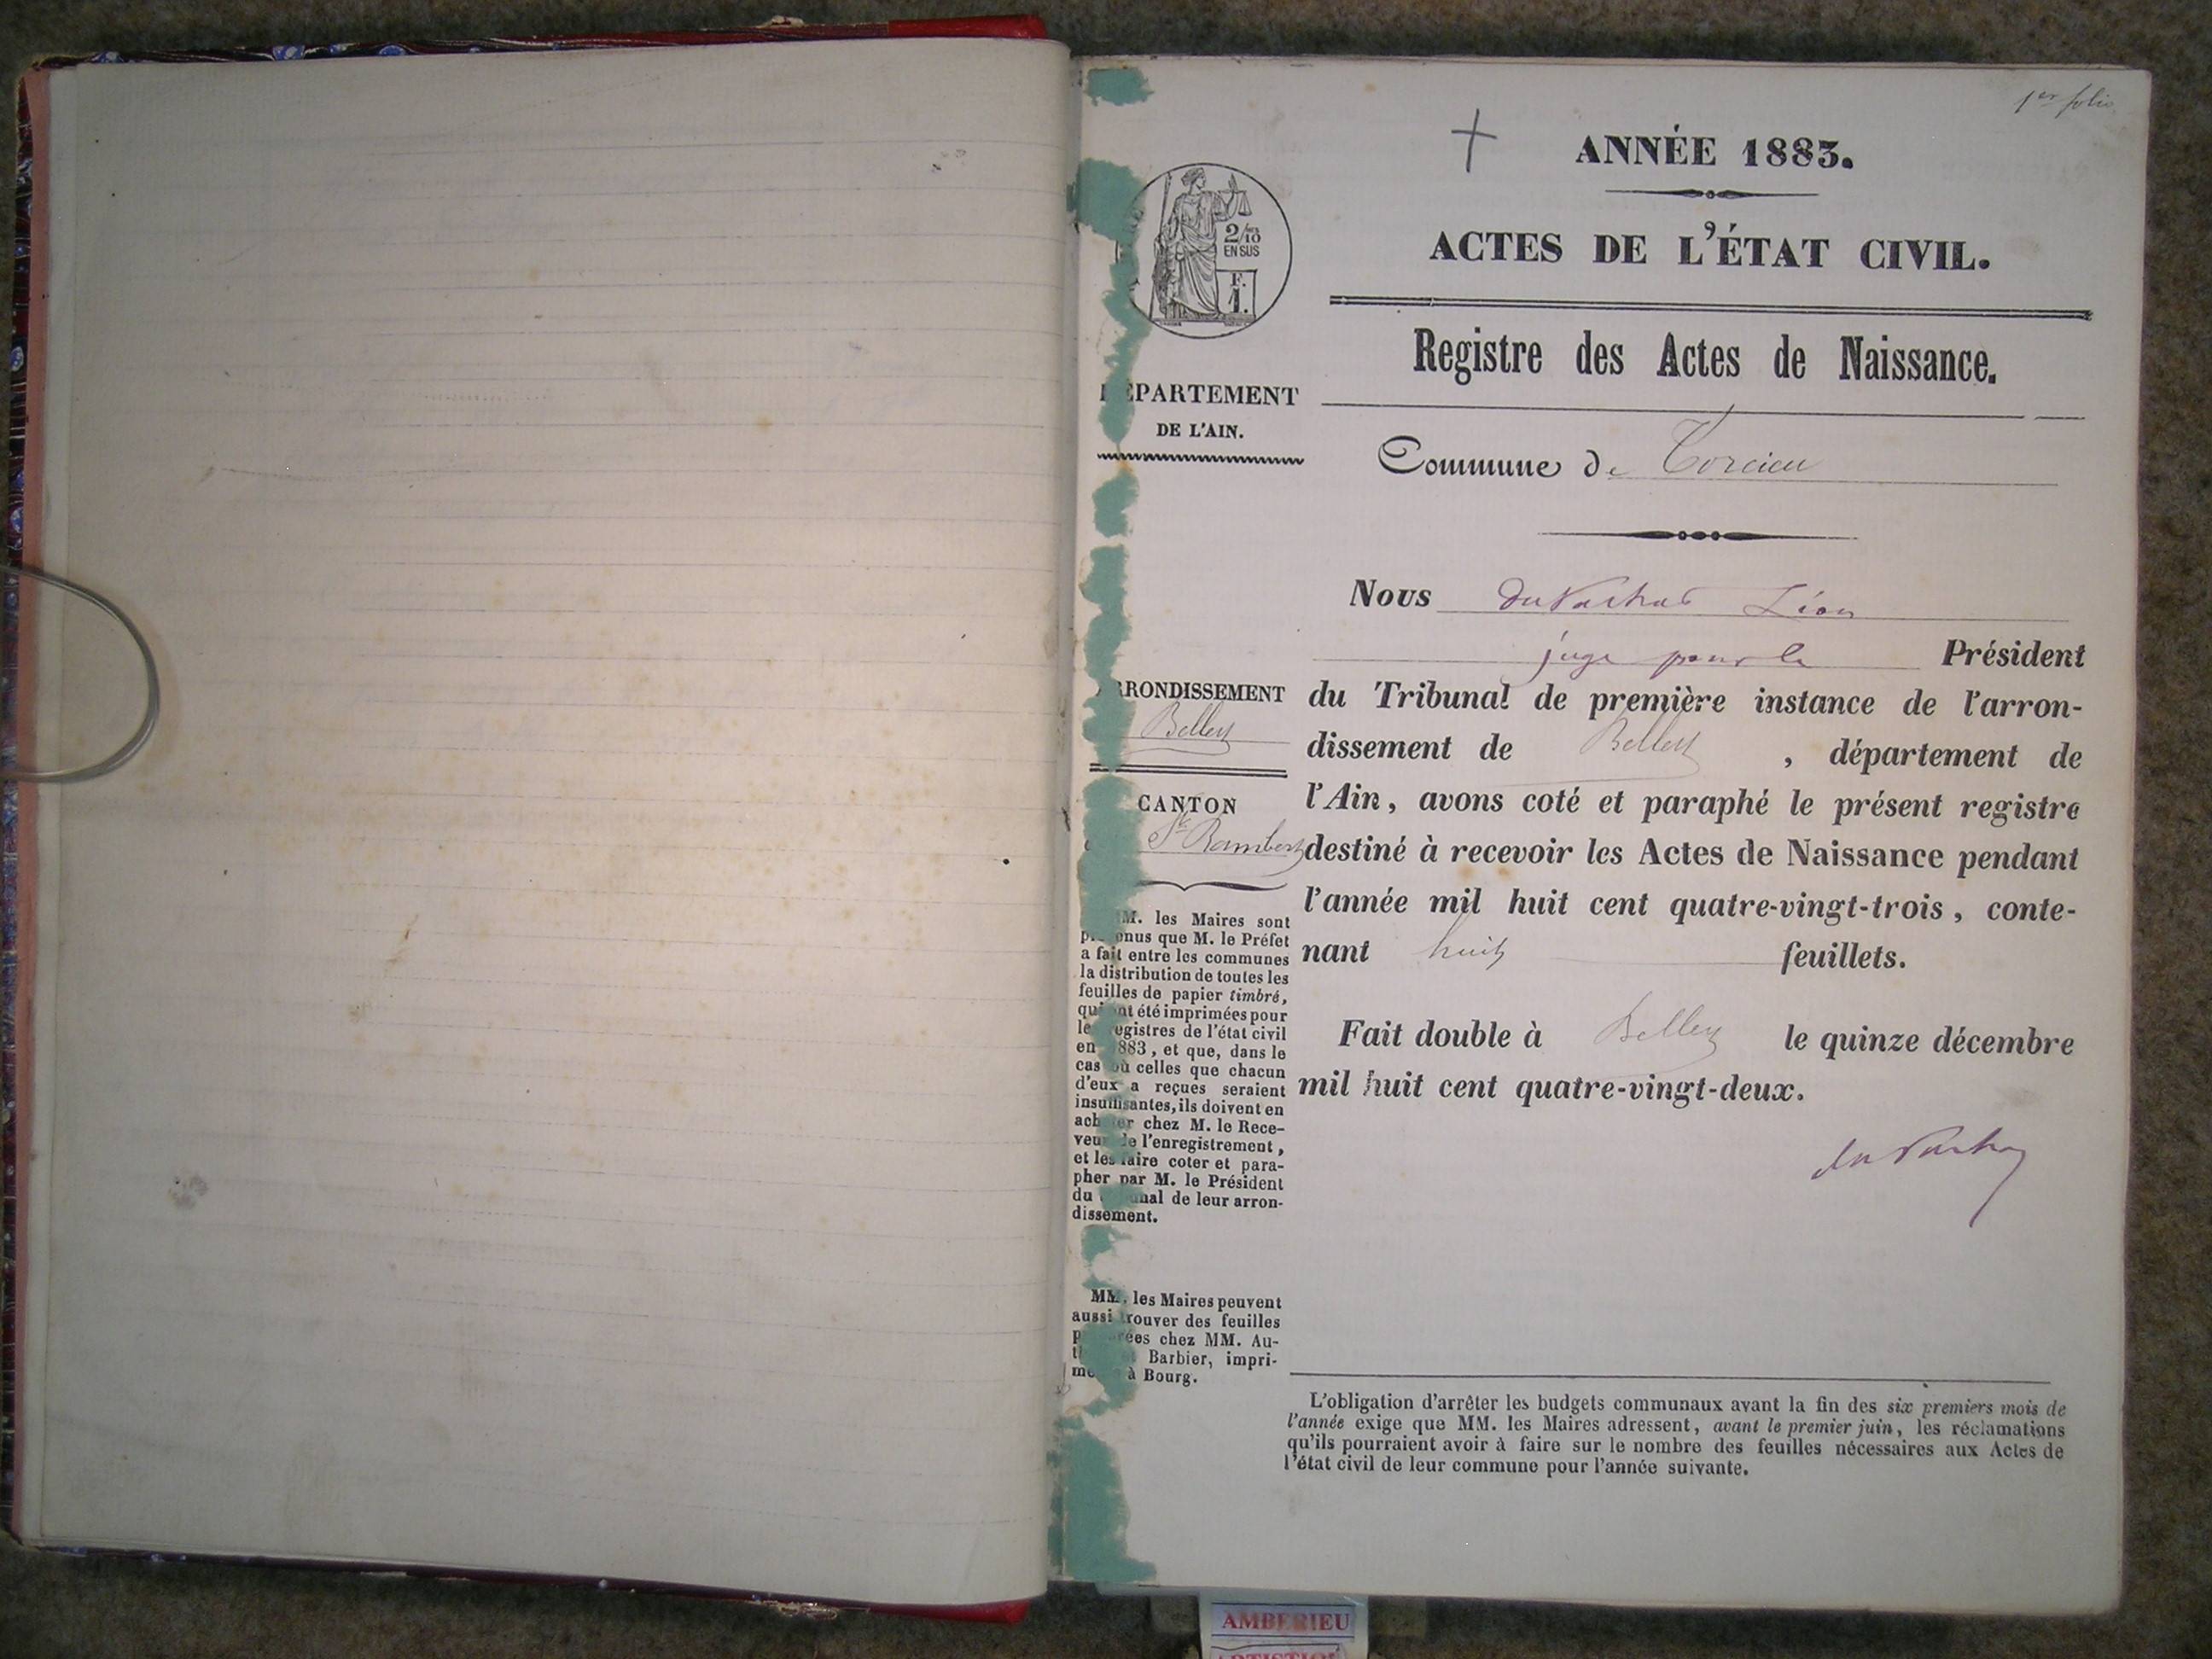 1er folio
ANNÉE 1883.
ACTES DE L'ÉTAT CIVIL.
2/10
EN SUS
F.
1.
Registre des Actes de Naissance.
DÉPARTEMENT
DE L'AIN.
Commune de Torcieu
Nous Léon
juge pour le Président
ARRONDISSEMENT
Belley
du Tribunal de première instance de l'arron-
dissement de Belley, département de
CANTON
St Rambert
l'Ain, avons coté et paraphé le présent registre
destiné à recevoir les Actes de Naissance pendant
l'année mil huit cent quatre-vingt-trois, conte-
nant huit feuillets.
Fait double à Belley le quinze décembre
mil huit cent quatre-vingt-deux.
MM. les Maires sont
prévenus que M. le Préfet
a fait entre les communes
la distribution de toutes les
feuilles de papier timbré,
qui ont été imprimées pour
les registres de l'état civil
en 1883, et que, dans le
cas où celles que chacun
d'eux a reçues seraient
insuffisantes, ils doivent en
acheter chez M. le Rece-
veur de l'enregistrement,
et les faire coter et para-
pher par M. le Président
du tribunal de leur arron-
dissement.
MM. les Maires peuvent
aussi trouver des feuilles
chez MM. Au-
Barbier, impri-
à Bourg.
L'obligation d'arrêter les budgets communaux avant la fin des six premiers mois de
l'année exige que MM. les Maires adressent, avant le premier juin, les réclamations
qu'ils pourraient avoir à faire sur le nombre des feuilles nécessaires aux Actes de
l'état civil de leur commune pour l'année suivante.
AMBERIEU